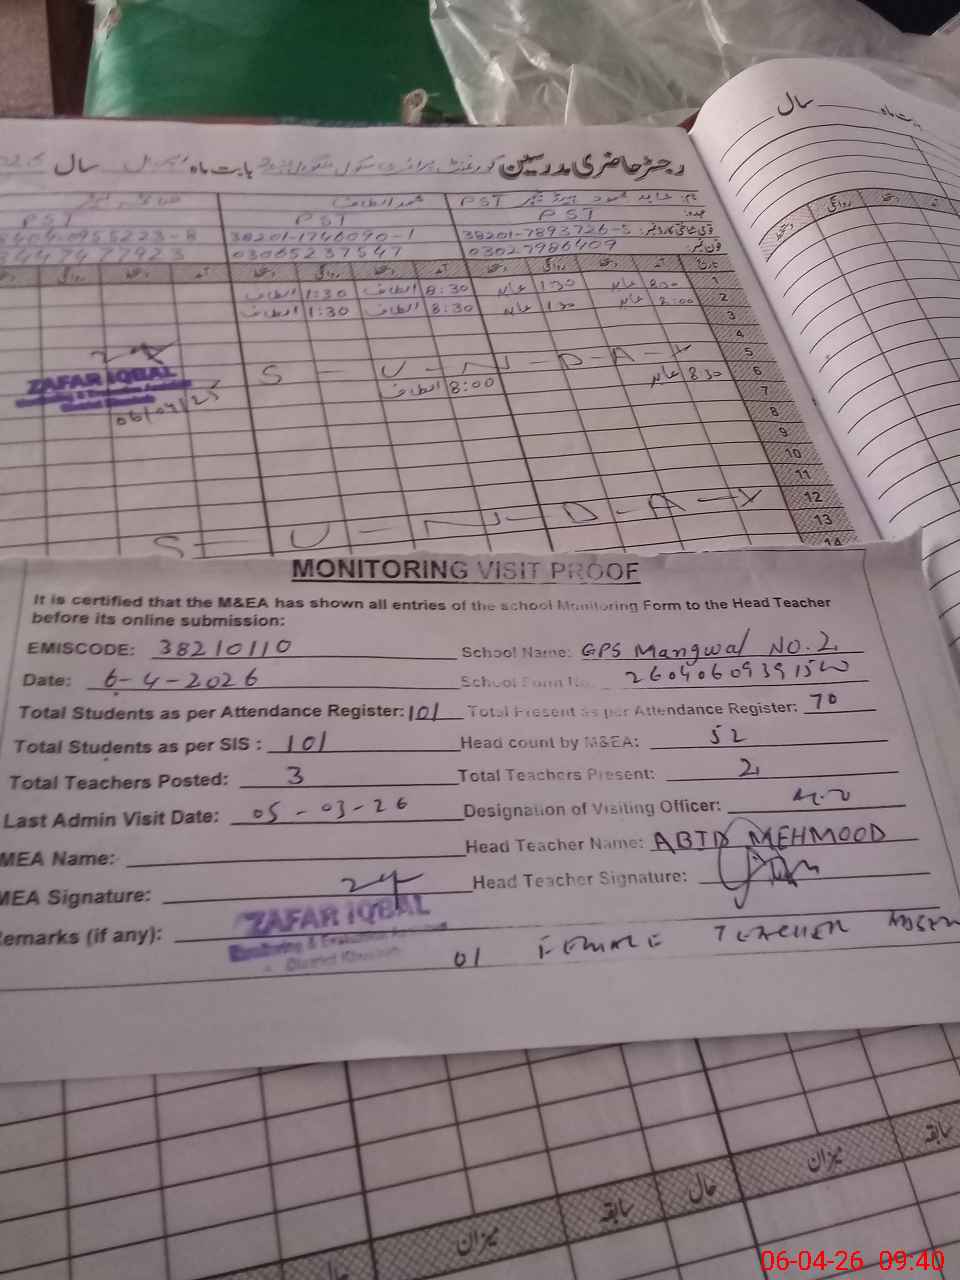 سال بابت ماہ
رجسٹر حاضری مدرسین گورنمنٹ پرائمری سکول بابت ماہ سال
نام: عابد محمود PST
محمد الطاف
عہدہ: PST PST PST
قومی شناختی کارڈ نمبر: 38201-7893726-5 38201-1746090-1
فون نمبر: 03027986409 03065237547 3447477923
تاریخ آمد دستخط روانگی دستخط آمد دستخط روانگی دستخط
روانگی دستخط آمد
1 8:00 عابد 1:30 عابد 8:30 الطاف 1:30 الطاف
2 8:00 عابد 1:30 عابد 8:30 الطاف 1:30 الطاف
3
4
5 S - U - N - D - A - Y
6 8:30 عابد 8:00 الطاف
ZAFAR IQBAL
Monitoring & Evaluation Assistant
District Khushab
7
8
9
10
11
12 S - U - N - D - A - Y
13
14
MONITORING VISIT PROOF
It is certified that the M&EA has shown all entries of the school Monitoring Form to the Head Teacher
before its online submission:
EMISCODE: 38210110 School Name: GPS Mangwal NO.2
Date: 6-4-2026 School Form No.
Total Students as per Attendance Register: 101 Total Present as per Attendance Register: 70
Total Students as per SIS : 101 Head count by M&EA: 52
Total Teachers Posted: 3 Total Teachers Present: 2
Last Admin Visit Date: 05-03-26 Designation of Visiting Officer:
MEA Name: Head Teacher Name: ABID MEHMOOD
MEA Signature: Head Teacher Signature:
ZAFAR IQBAL
Monitoring & Evaluation Assistant
District Khushab
Remarks (if any): 01 FEMALE TEACHER ABSENT
سابقہ میزان حال سابقہ میزان حال
06-04-26 09:40